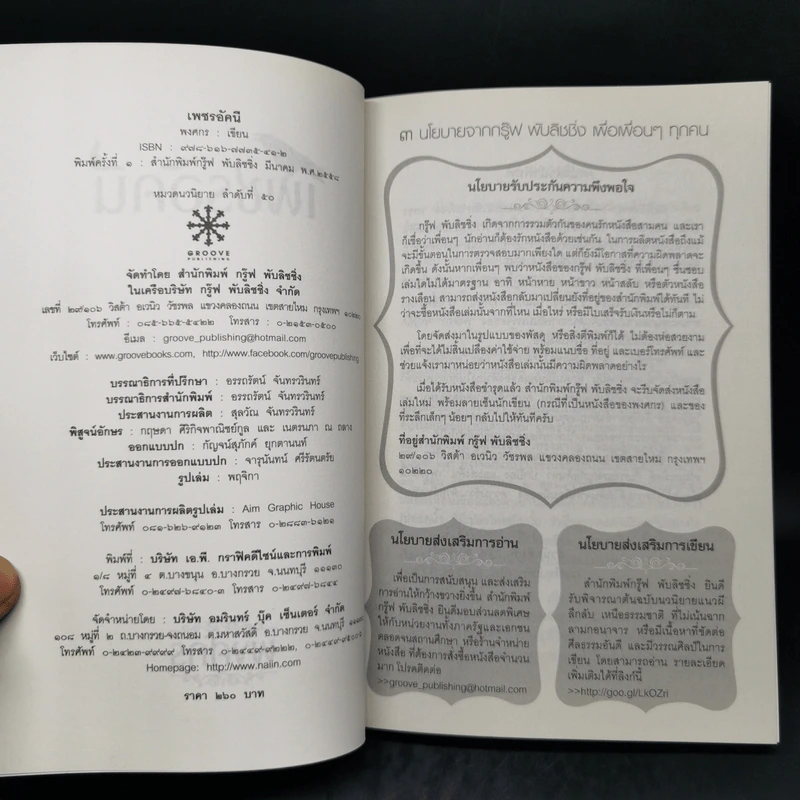 เพชรอัคนี
พงศกร : เขียน
ISBN : ๙๗๘-๖๑๖-๗๗๓๕-๔๑-๒
พิมพ์ครั้งที่ ๑ : สำนักพิมพ์กรู๊ฟ พับลิชชิ่ง มีนาคม พ.ศ.๒๕๕๘
หมวดนวนิยาย ลำดับที่ ๕๐
GROOVE
PUBLISHING
จัดทำโดย สำนักพิมพ์ กรู๊ฟ พับลิชชิ่ง
ในเครือบริษัท กรู๊ฟ พับลิชชิ่ง จำกัด
เลขที่ ๒๙/๑๐๖ วิสต้า อเวนิว วัชรพล แขวงคลองถนน เขตสายไหม กรุงเทพฯ ๑๐๒๒๐
โทรศัพท์ : ๐๘๕-๖๖๕-๕๔๒๒ โทรสาร : ๐-๒๑๕๓-๐๕๐๐
อีเมล : groove_publishing@hotmail.com
เว็บไซต์ : www.groovebooks.com, http://www.facebook.com/groovepublishing
บรรณาธิการที่ปรึกษา : อรรถรัตน์ จันทรวรินทร์
บรรณาธิการสำนักพิมพ์ : อรรถรัตน์ จันทรวรินทร์
ประสานงานการผลิต : สุลวัณ จันทรวรินทร์
พิสูจน์อักษร : กฤษดา ศิริกิจพาณิชย์กูล และ เนตรนภา ณ ถลาง
ออกแบบปก : กัญจน์สุภัคค์ ยุกตานนท์
ประสานงานการออกแบบปก : จารุนันทน์ ศรีรัตนตรัย
รูปเล่ม : พฤจิกา
ประสานงานการผลิตรูปเล่ม : Aim Graphic House
โทรศัพท์ ๐๘๑-๖๒๖-๙๑๒๓ โทรสาร ๐-๒๘๘๓-๖๑๒๑
พิมพ์ที่ : บริษัท เอ.พี. กราฟิคดีไซน์และการพิมพ์
๑/๘ หมู่ที่ ๔ ต.บางขนุน อ.บางกรวย จ.นนทบุรี ๑๑๑๓๐
โทรศัพท์ ๐-๒๔๙๗-๖๘๔๐-๓ โทรสาร ๐-๒๔๙๗-๖๘๔๔
จัดจำหน่ายโดย : บริษัท อมรินทร์ บุ๊ค เซ็นเตอร์ จำกัด
๑๐๘ หมู่ที่ ๒ ถ.บางกรวย-จงถนอม ต.มหาสวัสดิ์ อ.บางกรวย จ.นนทบุรี
โทรศัพท์ ๐-๒๔๒๓-๙๙๙๙ โทรสาร ๐-๒๔๔๙-๙๒๒๒,
Homepage: http://www.naiin.com
ราคา ๒๖๐ บาท
๓ นโยบายจากกรู๊ฟ พับลิชชิ่ง เพื่อเพื่อนๆ ทุกคน
นโยบายรับประกันความพึงพอใจ
กรู๊ฟ พับลิชชิ่ง เกิดจากการรวมตัวกันของคนรักหนังสือสามคน และเรา
ก็เชื่อว่าเพื่อนๆ นักอ่านก็ต้องรักหนังสือด้วยเช่นกัน ในการผลิตหนังสือถึงแม้
จะมีขั้นตอนในการตรวจสอบมากเพียงใด แต่ก็ยังมีโอกาสที่ความผิดพลาดจะ
เกิดขึ้น ดังนั้นหากเพื่อนๆ พบว่าหนังสือของกรู๊ฟ พับลิชชิ่ง ที่เพื่อนๆ ชื่นชอบ
เล่มใดไม่ได้มาตรฐาน อาทิ หน้าหาย หน้าขาว หน้าสลับ หรือตัวหนังสือ
รางเลือน สามารถส่งหนังสือกลับมาเปลี่ยนยังที่อยู่ของสำนักพิมพ์ได้ทันที ไม่
ว่าจะซื้อหนังสือเล่มนั้นจากที่ไหน เมื่อไหร่ หรือมีใบเสร็จรับเงินหรือไม่ก็ตาม
โดยจัดส่งมาในรูปแบบของพัสดุ หรือสิ่งตีพิมพ์ก็ได้ ไม่ต้องห่อสวยงาม
เพื่อที่จะได้ไม่สิ้นเปลืองค่าใช้จ่าย พร้อมแนบชื่อ ที่อยู่ และเบอร์โทรศัพท์ และ
ช่วยแจ้งเรามาหน่อยว่าหนังสือเล่มนั้นมีความผิดพลาดอย่างไร
เมื่อได้รับหนังสือชำรุดแล้ว สำนักพิมพ์กรู๊ฟ พับลิชชิ่ง จะรีบจัดส่งหนังสือ
เล่มใหม่ พร้อมลายเซ็นนักเขียน (กรณีที่เป็นหนังสือของพงศกร) และของ
ที่ระลึกเล็กๆ น้อยๆ กลับไปให้ทันทีครับ
ที่อยู่สำนักพิมพ์ กรู๊ฟ พับลิชชิ่ง
๒๙/๑๐๖ วิสต้า อเวนิว วัชรพล แขวงคลองถนน เขตสายไหม กรุงเทพฯ
๑๐๒๒๐
นโยบายส่งเสริมการอ่าน
เพื่อเป็นการสนับสนุน และส่งเสริม
การอ่านให้กว้างขวางยิ่งขึ้น สำนักพิมพ์
กรู๊ฟ พับลิชชิ่ง ยินดีมอบส่วนลดพิเศษ
ให้กับหน่วยงานทั้งภาครัฐและเอกชน
ตลอดจนสถานศึกษา หรือร้านจำหน่าย
หนังสือ ที่ต้องการสั่งซื้อหนังสือจำนวน
มาก โปรดติดต่อ
>>groove_publishing@hotmail.com
นโยบายส่งเสริมการเขียน
สำนักพิมพ์กรู๊ฟ พับลิชชิ่ง ยินดี
รับพิจารณาต้นฉบับนวนิยายแนวผี
ลึกลับ เหนือธรรมชาติ ที่ไม่เน้นฉาก
ลามกอนาจาร หรือมีเนื้อหาที่ขัดต่อ
ศีลธรรมอันดี และมีวรรณศิลป์ในการ
เขียน โดยสามารถอ่าน รายละเอียด
เพิ่มเติมได้ที่ลิงก์นี้
>>http://goo.gl/LkOZri